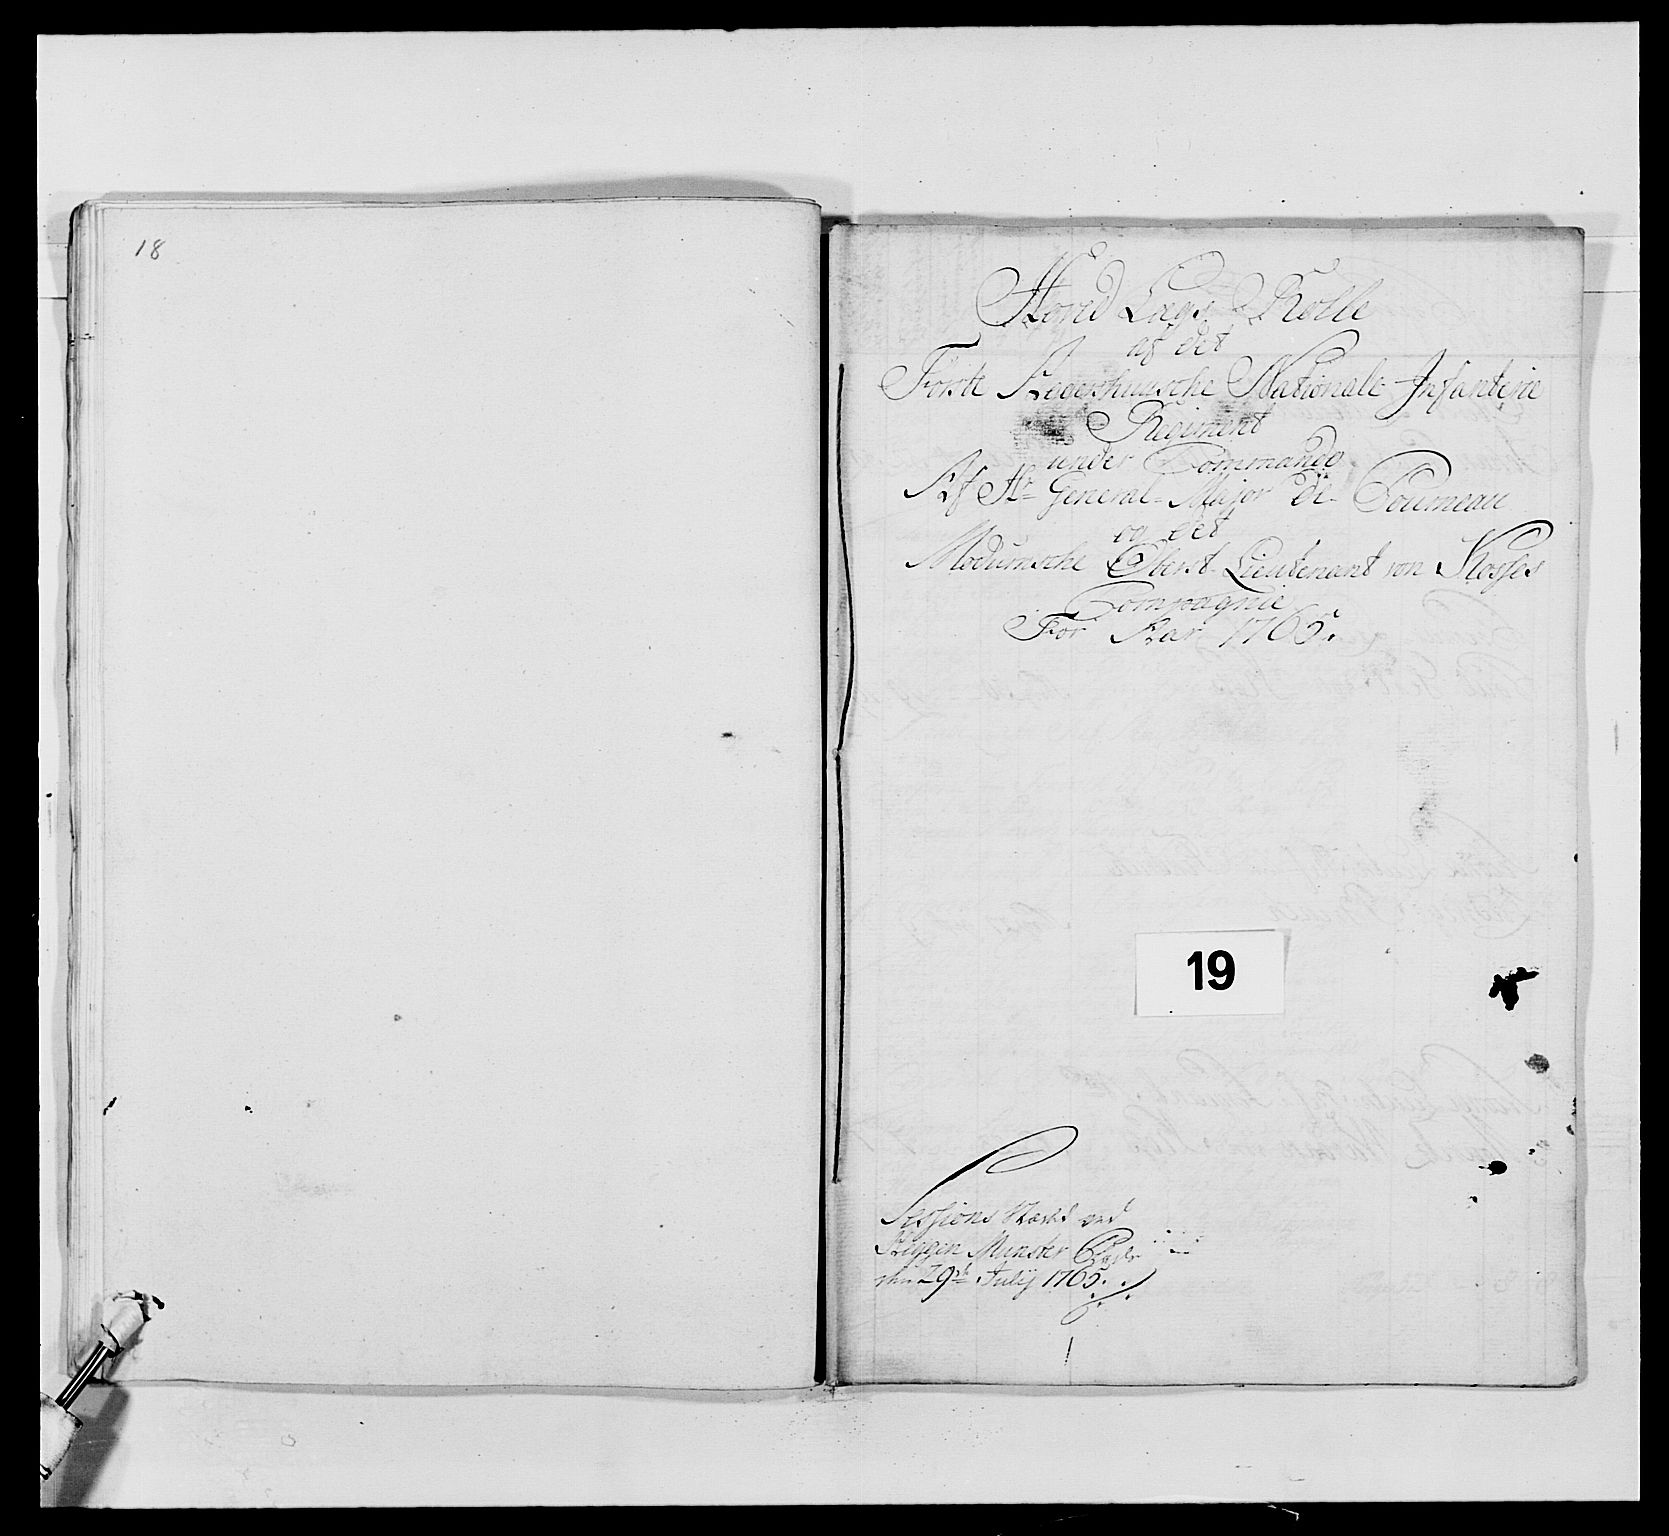 18
Hoved Lægs Rolle
af det
Første Aggershuusche Nationale Infanterie
Regiment
under Commando
Af Hr General-Major de Poumeau
og det
Modumsche Oberst-Lieutenant von Kosses
Compagnie
For Aar 1765.
19
Sessions Værket ved
Heggen Munster
den 29de Julij 1765.